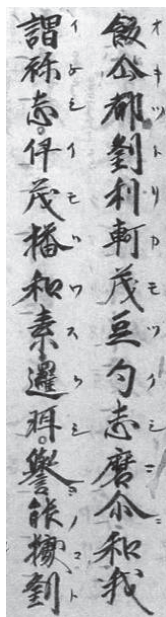 飫企都鄧利軻茂豆勾志磨尒和我
謂祢志伊茂播和素邏珥譽能據鄧